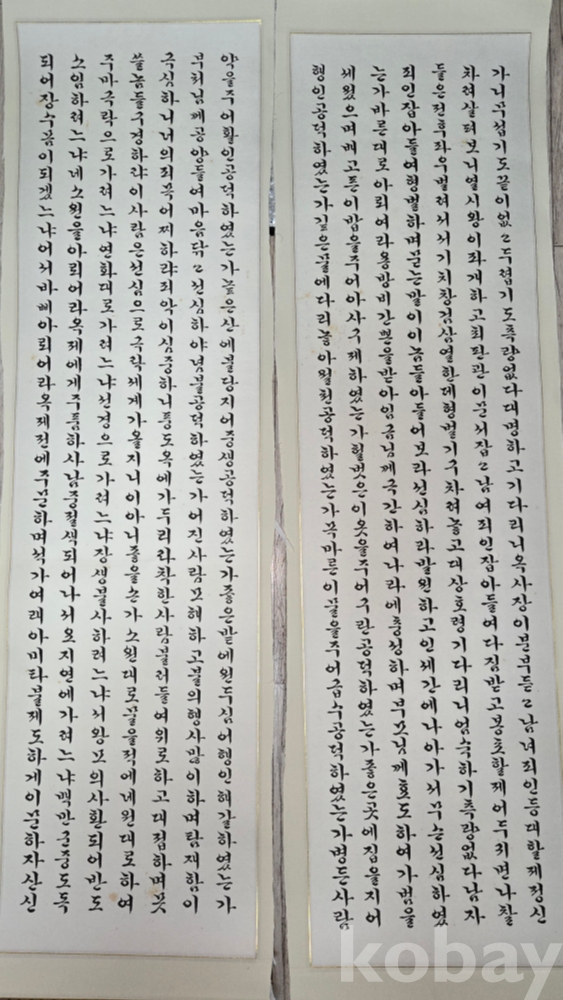 가니무섭기도끝이없고두렵기도측량없다대명하고기다리니옥사장이분부듣고남녀죄인등대할제정신
차려살펴보니열시왕이좌개하고최판관이문서잡고남여죄인잡아들여다짐받고봉초할제어두귀면나찰
들은전후좌우벌려서서기치창검삼열한데형벌기구차려놓고대상호령기다리니엄숙하기측량없다남자
죄인잡아들여형벌하며묻는말이이놈들아들어보라선심하라발원하고인세간에나아가서무슨선심하였
는가바른대로아뢰여라용방비간뽄을받아임금님께극간하여나라에충성하며부모님께효도하여가범을
세웠으며배고픈이밥을주어아사구제하였는가헐벗은이옷을주어구란공덕하였는가좋은곳에집을지어
행인공덕하였는가깊은물에다리놓아월천공덕하였는가목마른이물을주어급수공덕하였는가병든사람
약을주어활인공덕하였는가높은산에불당지어중생공덕하였는가좋은밭에원두심어행인해갈하였는가
부처님께공양들여마음닦고선심하야념불공덕하였는가어진사람모해하고불의행사많이하며탐재함이
극심하니너의죄목어찌하랴죄악이심중하니풍도옥에가두리라착한사람불러들여위로하고대접하며못
쓸놈들구경하라이사람은선심으로극락세계가올지니이아니좋을손가소원대로물을적에네원대로하여
주마극락으로가려느냐연화대로가려느냐선경으로가려느냐장생불사하려느냐서왕모의사환되어반도
소임하려느냐네소원을아뢰어라옥제에게주품하사남중절색되어나서요지연에가려느냐백만군중도독
되어장수몸이되겠느냐어서바삐아뢰어라옥제전에주문하며석가여래아미타불제도하게이문하자산신
kobay